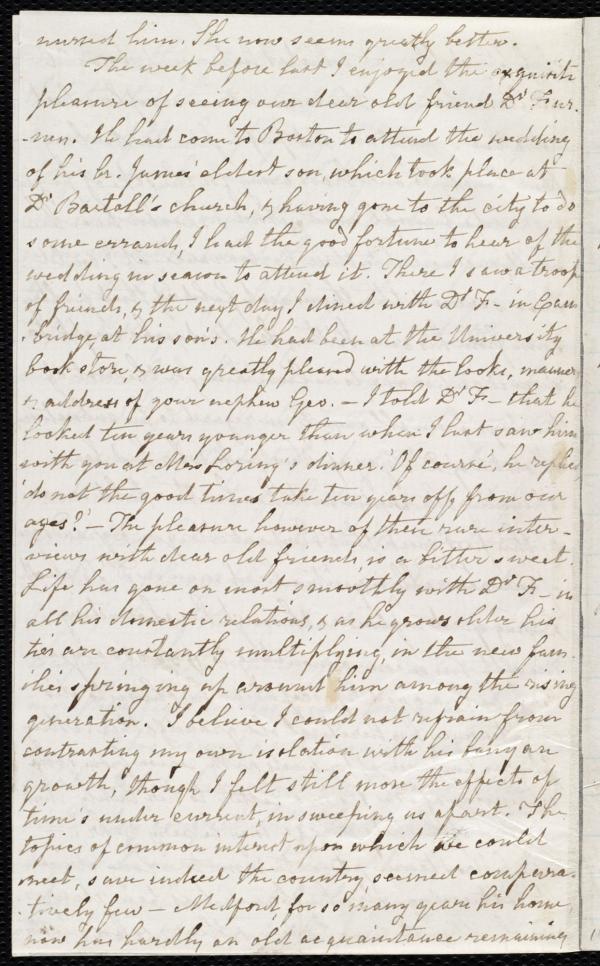 nursed him. She now seems greatly better.
The week before last I enjoyed the exquisite
pleasure of seeing our dear old friend Dr Fur-
-nen. He had come to Boston to attend the wedding
of his br. James' eldest son, which took place at
Dr Bartoll's church, & having gone to the city to do
some errands, I had the good fortune to hear of the
wedding in season to attend it. There I saw a troop
of friends, & the next day I dined with Dr F- in Cam
-bridge, at his son's. He had been at the University
book store, & was greatly pleased with the looks, manner
& address of your nephew Geo. - I told Dr F- that he
looked ten years younger than when I last saw him
with you at Mrs Loring's dinner. 'Of course', he replied
'do not the good times take ten years off, from our
ages?' - The pleasure however of these rare inter-
-views with dear old friends, is a bitter sweet.
Life has gone on most smoothly with Dr F- in
all his domestic relations, & as he grows older his
ties are constantly multiplying, in the new fam-
ilies springing up around him among the rising
generation. I believe I could not refrain from
contrasting my own isolation with his banyan
growth, though I felt still more the effects of
time's under current, in sweeping us apart. The
topics of common interest upon which we could
meet, save indeed the country, seemed compara-
-tively few - Medford, for so many years his home,
now has hardly an old acquaintance remaining